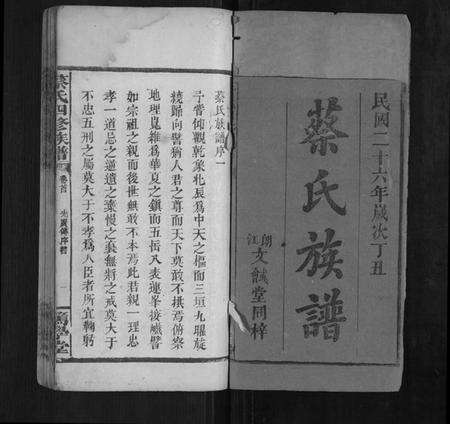 民國二十六年歲次丁丑
蔡氏族譜
朗江文誠堂同梓
蔡氏族譜序一
予嘗仰觀乾象北辰爲中天之樞而三垣九曜旋
繞歸向譬猶人君之尊而天下莫敢不拱焉俯察
地理崑維爲華夏之鎭而五岳八表連峯接巘譬
如宗祖之親而後世無敢不本焉此君親一理忠
孝一道忌之逋遺之棄慢之棄無將之戒莫大于
不忠五刑之屬莫大于不孝爲人臣者所宜鞠躬
蔡氏四修族譜
卷首
序
一